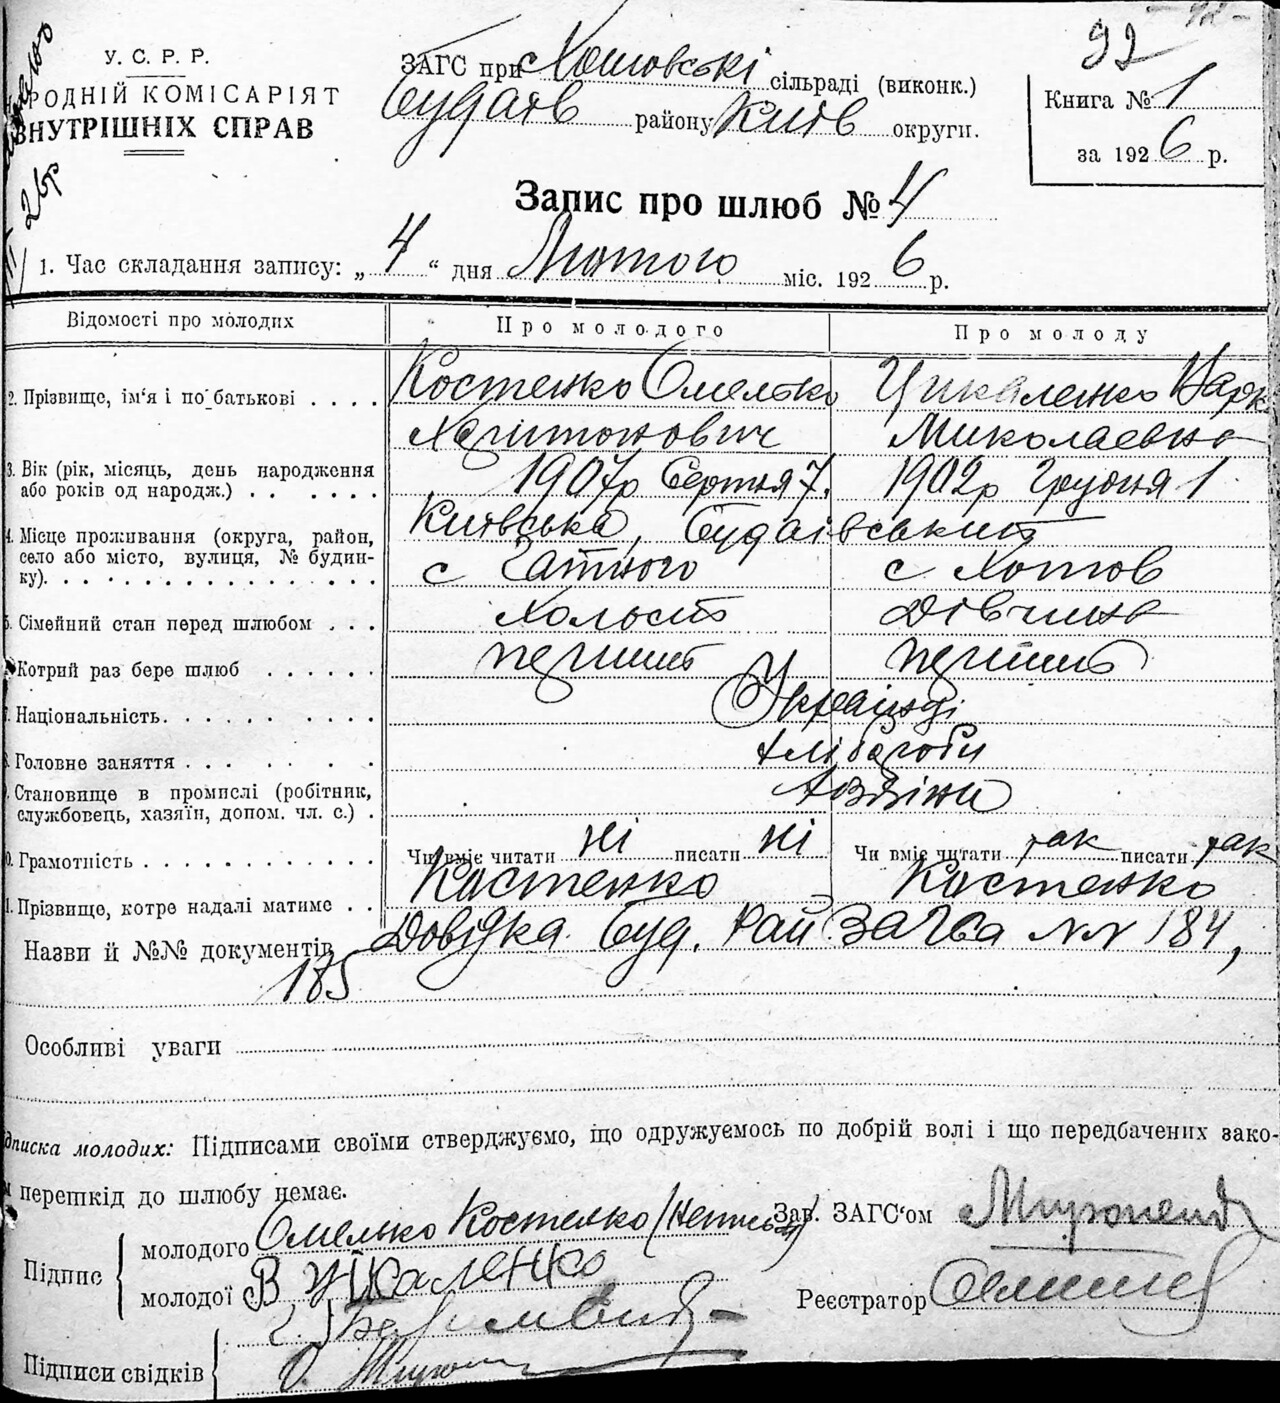 У. С. Р. Р.
РОДНІЙ КОМІСАРІЯТ
ВНУТРІШНІХ СПРАВ
ЗАГС при Хотовські сільраді (виконк.)
Будаїв району Київ округи.
92
Книга № 1
за 1926 р.
Запис про шлюб № 4
1. Час складання запису: „ 4 “ дня Лютого міс. 1926 р.
Відомості про молодих Про молодого Про молоду
2. Прізвище, ім‘я і по батькові . . . . Костенко Омелько Цикаленко Варк
Харитонович Миколаевна
3. Вік (рік, місяць, день народження або років од народж.) . . . . . . 1907р Серпня 7. 1902р Грудня 1
4. Місце проживання (округа, район, село або місто, вулиця, № будинку). Київська, Будаївський
с Гатного с Хотов
5. Сімейний стан перед шлюбом . . . Холост Дівчина
Котрий раз бере шлюб . . . . . . перший перший
Національність. . . . . . . . . Українці
Головне заняття . . . . . . . Хліброби
Становище в промислі (робітник, службовець, хазяїн, допом. чл. с.) . Хазяіни
Грамотність . . . . . . . . . . . . Чи вміє читати ні писати ні Чи вміє читати так писати так
Прізвище, котре надалі матиме . . Костенко Костенко
Назви й №№ документів Довідка Буд. Рай ЗАГСа NN 184,
185
Особливі уваги
дписка молодих: Підписами своїми стверджуємо, що одружуємось по добрій волі і що передбачених зако-
перешкід до шлюбу немає.
Підпис молодого Омелько Костенко (Неписьм) Зав. ЗАГС‘ом
молодої В Цікаленко Реєстратор
Підписи свідків